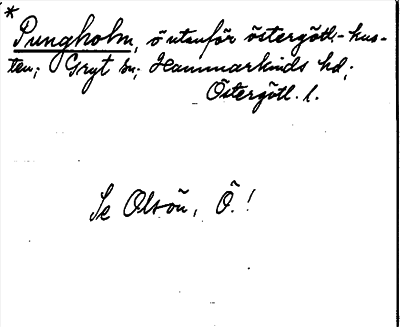 *
Pungholm, ö utanför östergötl.-kus-
ten; Gryt sn; Hammarkinds hd;
Östergötl. l.
Se Olsön, Ö.!